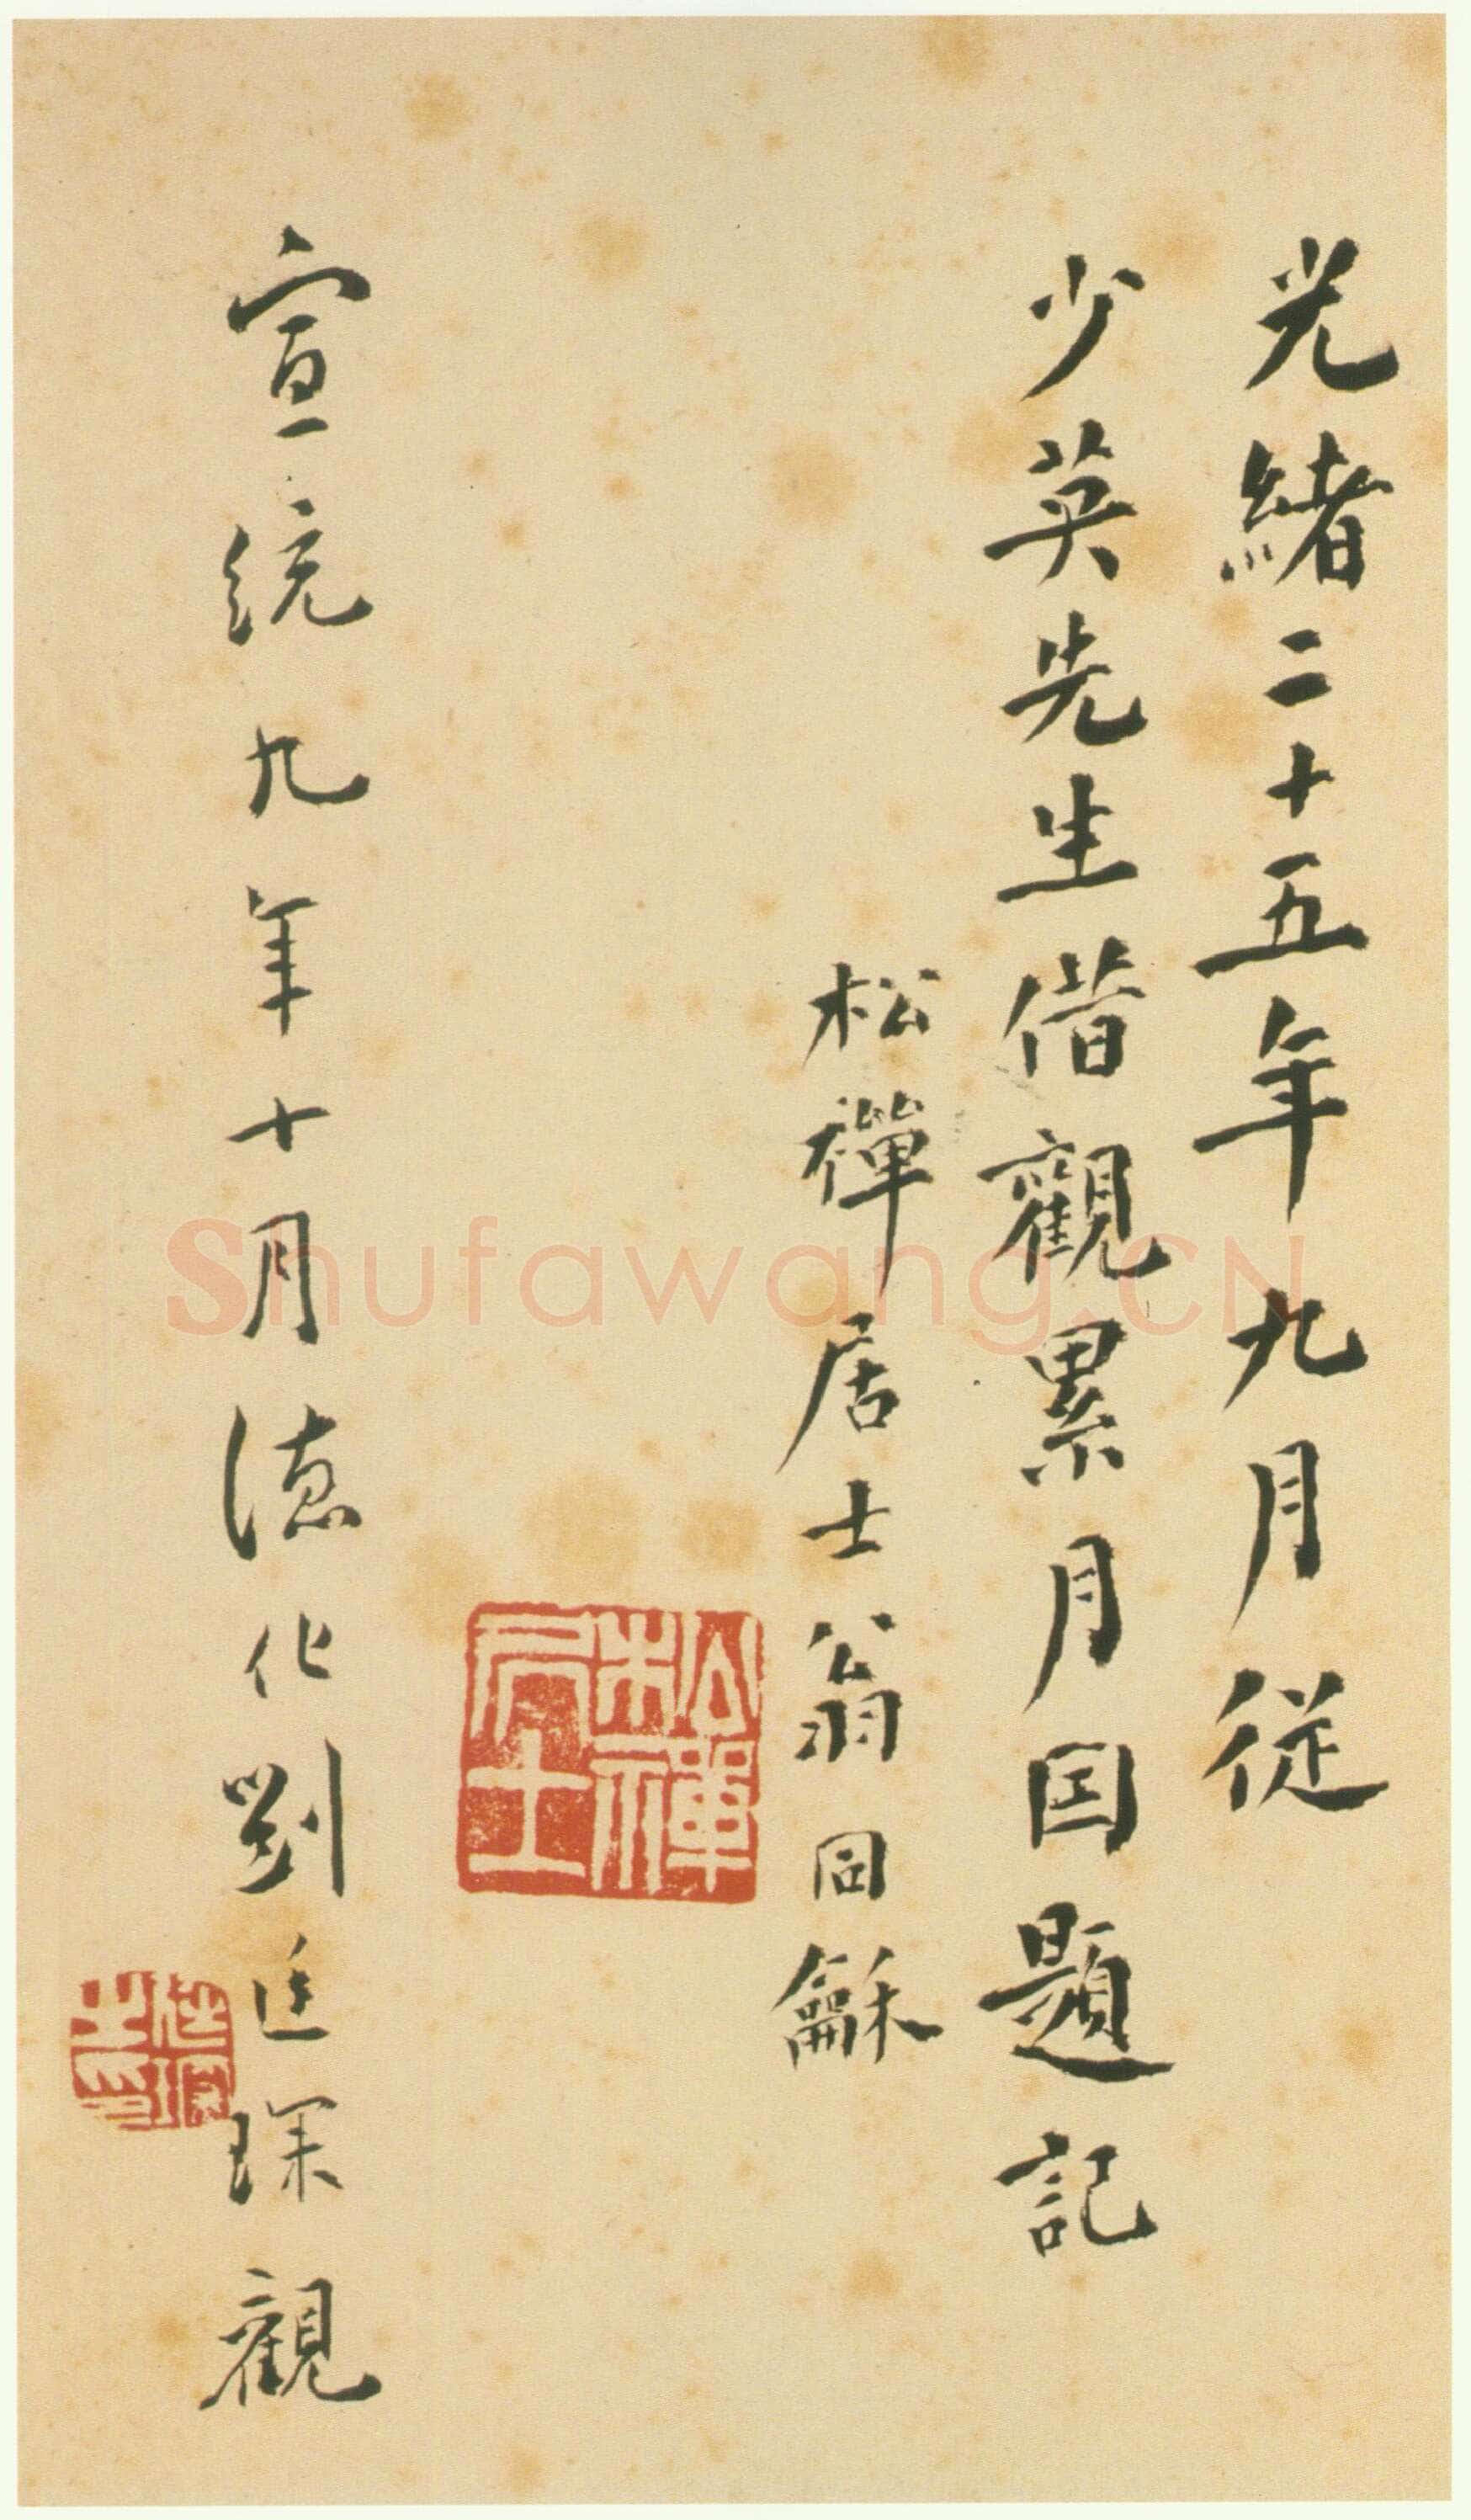 光緒二十五年九月從
少英先生借觀累月因題記
松禪居士翁同龢
松禪居士
宣統九年十月德化劉廷琛觀
Shufawang.CN